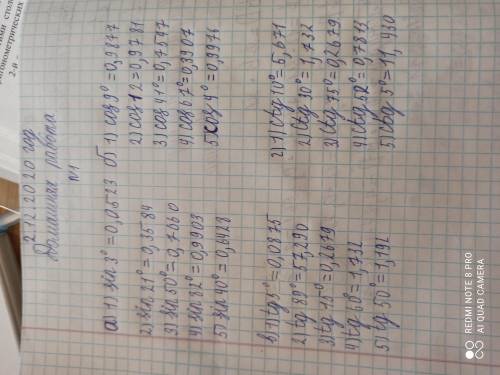 2.12.2020 год
Домашняя работа
№1
а) 1) sin 3° = 0,0523
2) sin 21° = 0,3584
3) sin 50° = 0,7660
4) sin 82° = 0,9903
5) sin 40° = 0,6428
б 1) cos 9° = 0,9877
2) cos 12 = 0,9781
3) cos 41° = 0,7547
4) cos 67° = 0,3907
5) cos 4° = 0,9976
в) 1) tg 5° = 0,0875
2) tg 89° = 57,290
3) tg 15° = 0,2679
4) tg 60° = 1,732
5) tg 50° = 1,192
2) 1) ctg 10° = 5,671
2) ctg 30° = 1,732
3) ctg 75° = 0,2679
4) ctg 52° = 0,7813
5) ctg 5° = 11,430
REDMI NOTE 8 PRO
AI QUAD CAMERA